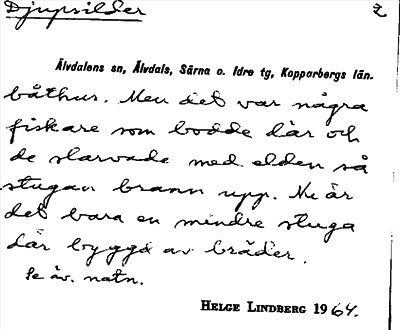 Djupsilder 2
Älvdalens sn, Älvdals, Särna o. Idre tg, Kopparbergs län.
båthus. Men det var några
fiskare som bodde där och
de slarvade med elden så
stugan brann upp. Nu är
det bara en mindre stuga
där byggd av bräder.
Se äv. natn.
HELGE LINDBERG 1964.